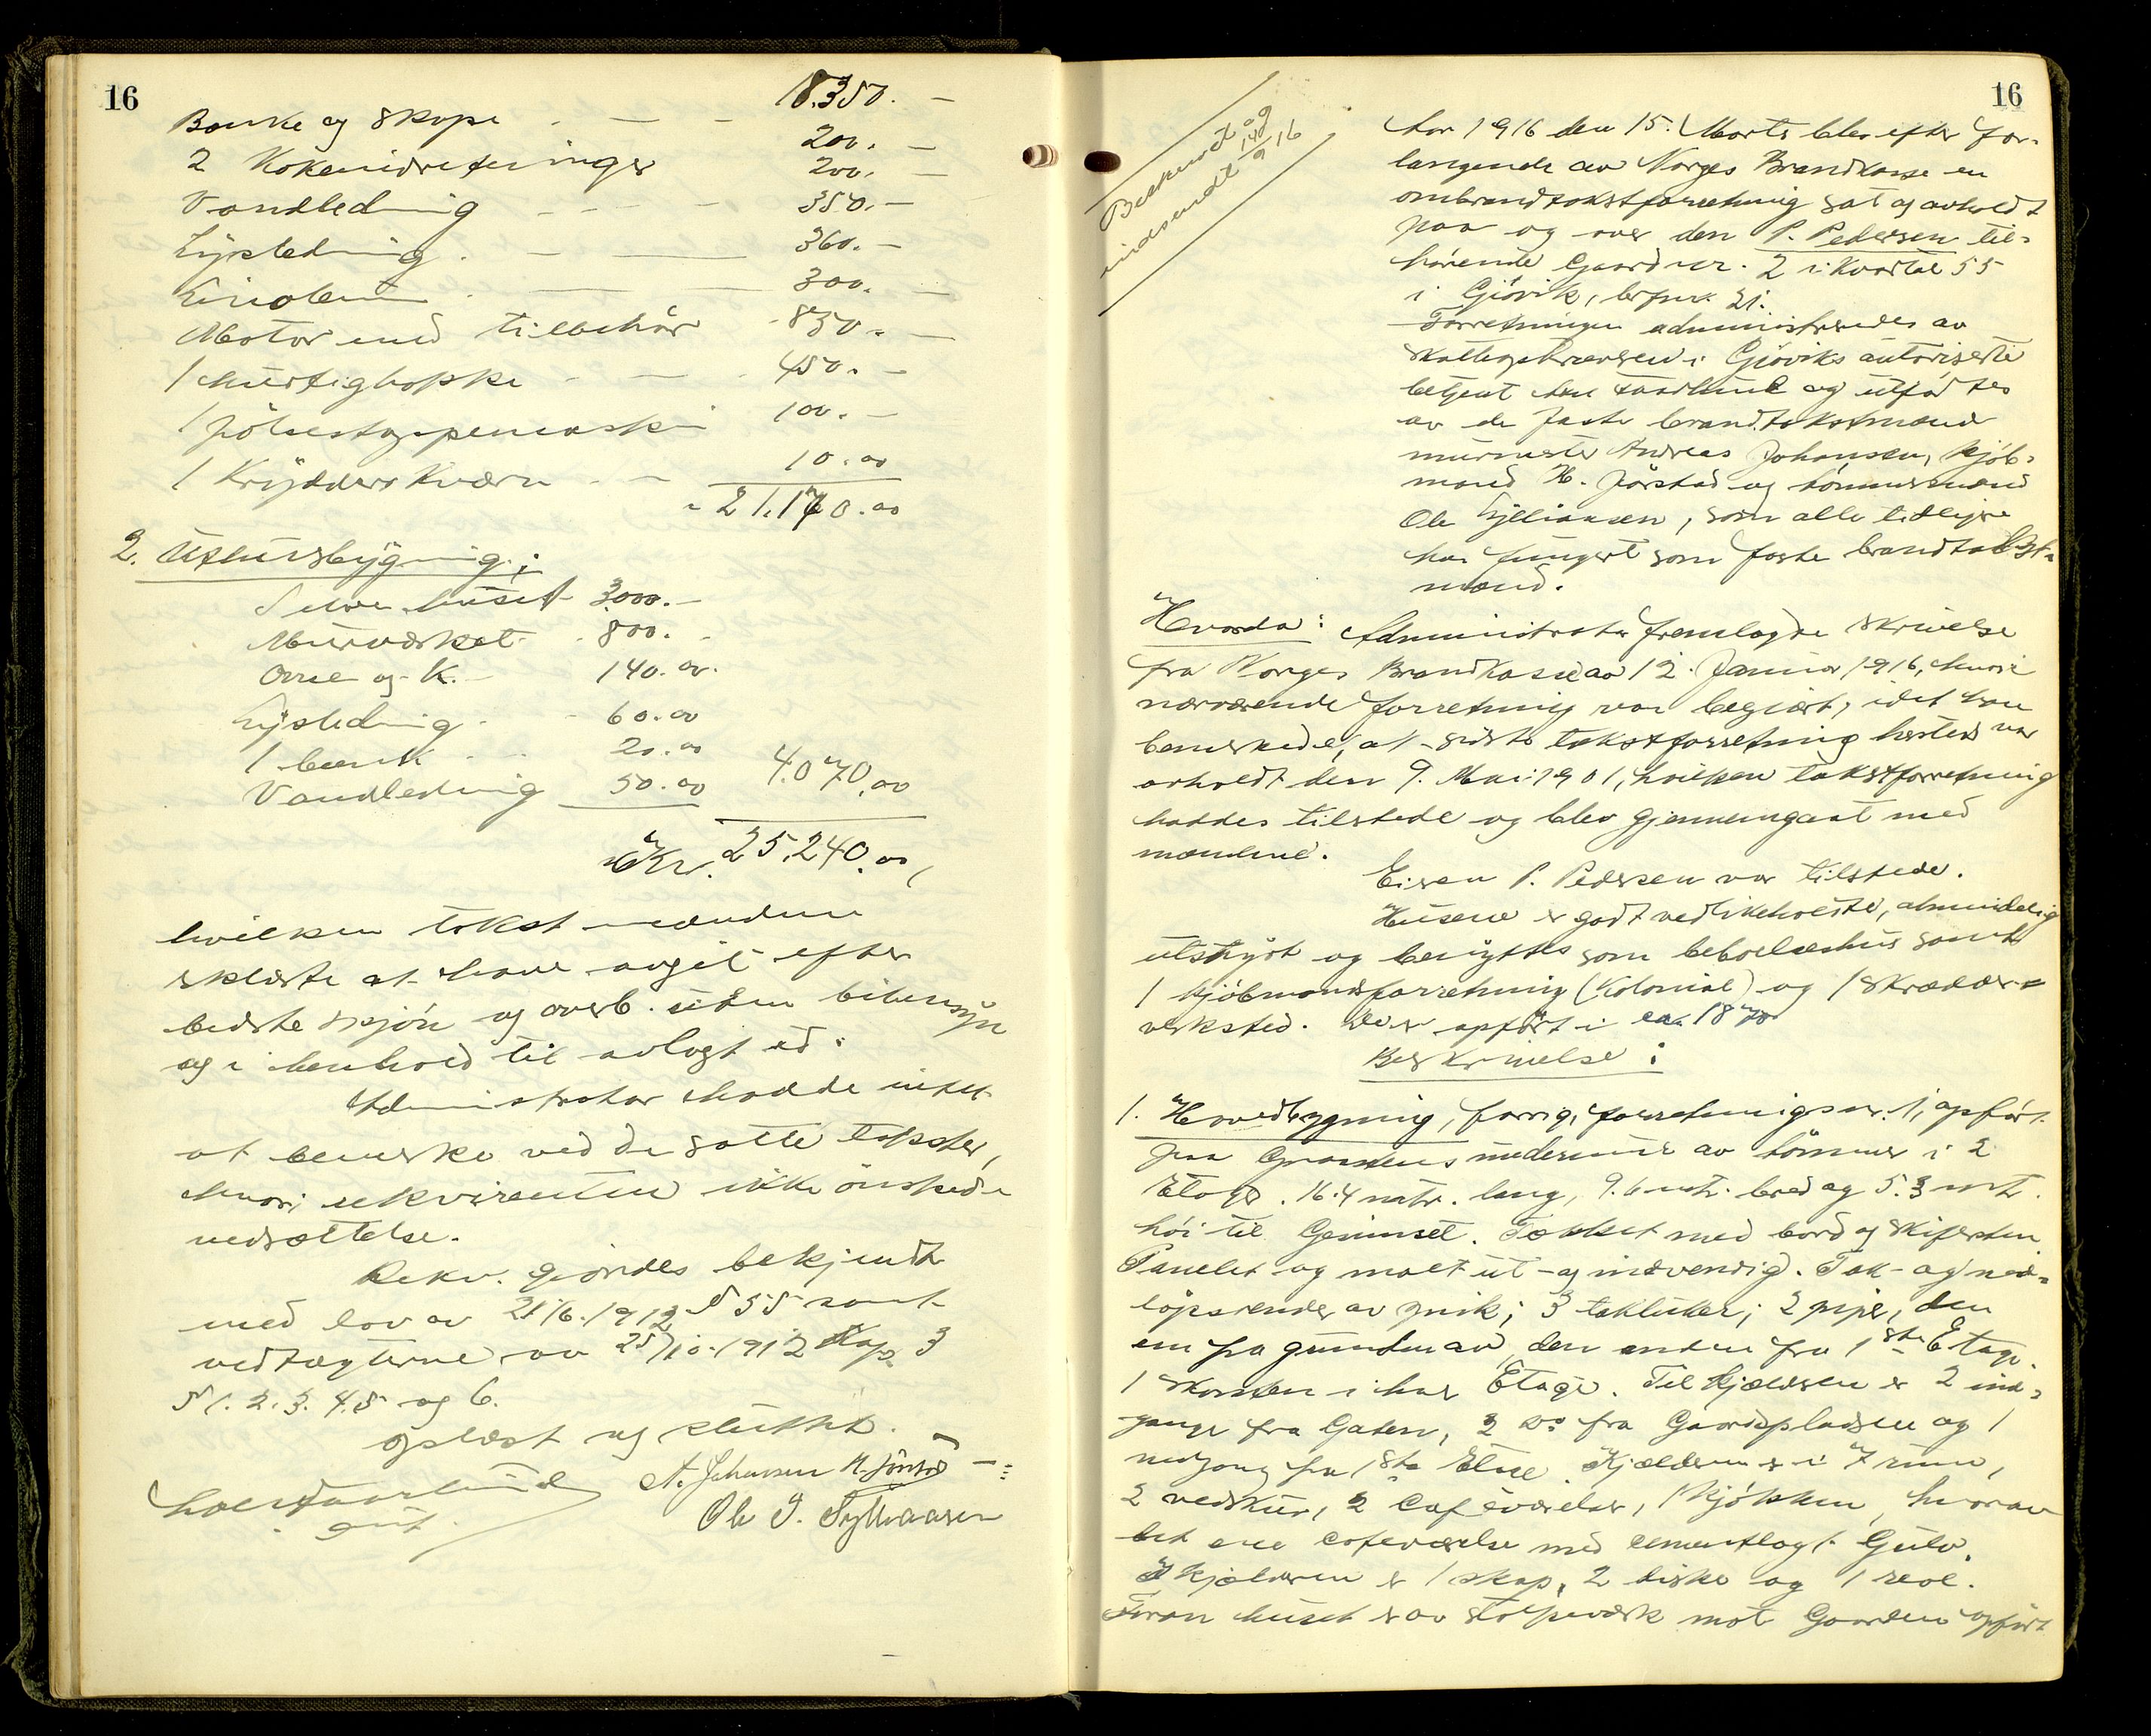 16
18.350. —
Bænke og skape — — — 200. —
2 Kokeindretninger 200. —
Vandledning - - - - 350. —
Lysledning . — — 360. —
Linoleum . — — 300. —
Motor med tilbehör 850. —
1 hurtighakke - — - 450. —
1 pölsestoppemaskin 100. —
1 Krydderkværn - — 10.00
21.170.00
2. Uthusbygning;
Selve huset 3000. —
Murværket - 800. -
Ovne og K. - 140.00.
Lysledning - - 60.00
1 bænk - - 20.00
Vandledning 50.00 4.070.00
Kr. 25.240.00,
hvilken takst mændene
erklærte at have avgit efter
bedste skjön og overb. uten bihensyn
og i henhold til avlagt ed.
Administrator hadde intet
at bemerke ved de satte takster,
hvori rekvirenten ikke önskede
nedsættelse.
Rekv. gjordes bekjendt
med lov av 21/6.1912 § 55 samt
vedtægterne av 25/10.1912 Kap. 3
§ 1. 2. 3. 4. 5 og 6.
Oplæst og sluttet.
A. Johansen H. Jörstad
Ole J. Gylliaasen
16
Bekrendt og
indsendt 14/9 16
Aar 1916 den 15. Marts blev efter for-
langende av Norges Brandkasse en
ombrandtakstforretning sat og avholdt
paa og over den P. Pedersen til-
hörende Gaard nr. 2 i Kvartal 55
i Gjövik, brfnr. 21.
Forretningen administreredes av
skatteopkræveren i Gjöviks autoriserte
betjent og utförtes
av de faste brandtakstmænd
murmester Andreas Johansen, kjöb-
mand H. Jörstad og tömmermand
Ole Gylliaasen, som alle tidligere
har fungert som faste brandtakst-
mænd.
Hvorda: Administrator fremlagde skrivelse
fra Norges Brandkasse av 12. Januar 1916, hvori
nærværende forretning var begjært, idet han
bemerkede, at sidste takstforretning hersteds var
avholdt den 9. Mai 1901, hvilken takstforretning
haddes tilstede og blev gjennemgaat med
mændene.
Eieren P. Pedersen var tilstede.
Husene er godt vedlikeholdte, almindelig
utstyrt og benyttes som beboelseshus samt
1 kjöbmandsforretning (Kolonial) og 1 skrædder-
verksted. De er opfört i ca. 1870
Beskrivelse:
1. Hovedbygning, forrige forretnings nr. 1, opfört
paa Graastens undermur av tömmer i 2
Etager. 16.4 mtr. lang, 9.6 mtr. bred og 5.3 mtr.
höi til Gesimset. Tækket med bord og skifersten
Panelet og malt ut- og indvendig. Tak- og ned-
löpsrender av zink; 3 takluker; 2 piper, den
ene fra grunden av, den anden fra 1ste Etage.
1 skorsten i hver Etage. Til kjælderen er 2 ind-
gange fra Gaten, 2 do fra Gaardspladsen og 1
nedgang fra 1ste Etage. Kjælderen er i 7 rum,
2 vedskur, 2 Cafeværelser, 1 kjökken, hvorav
det ene cafeværelse med cementlagt Gulv.
I kjælderen er 1 skap, 2 diske og 1 reol.
Foran huset er av Stolpeverk mot Gaarden opfört